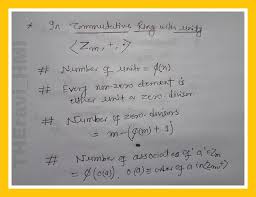 * In Commutative Ring with unity
<Zm, +, ·>
# Number of unit = φ(n)
# Every non-zero element is
either unit or zero divisor
# Number of zero-divisors
= m-(φ(m)+1)
# Number of associates of 'a'∈Zm
= φ(o(a)), o(a) = order of a in (Zm,+)
THEravi_HMI